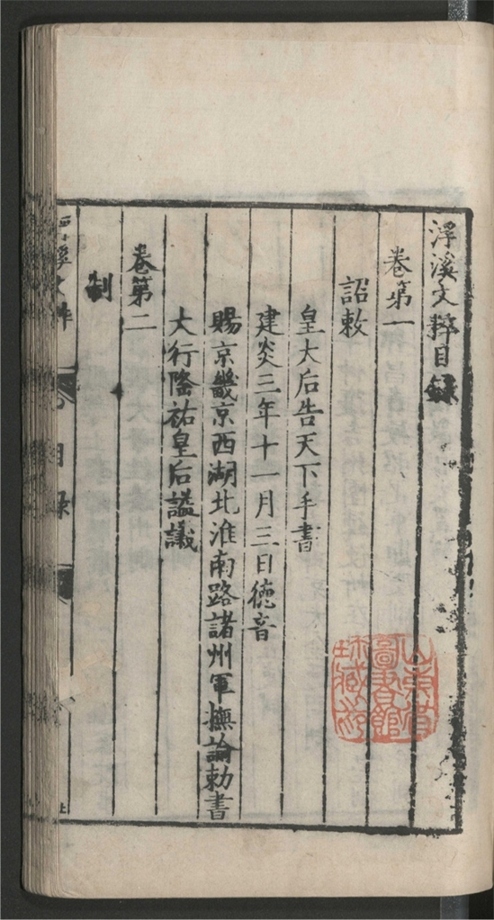 浮溪文粹目録
卷第一
詔敕
皇太后告天下手書
建炎三年十一月三日德音
賜京畿京西湖北淮南路諸州軍撫諭勅書
大行隆祐皇后諡議
卷第二
制
溪文粹
目録
山東省
圖書館
珍藏印